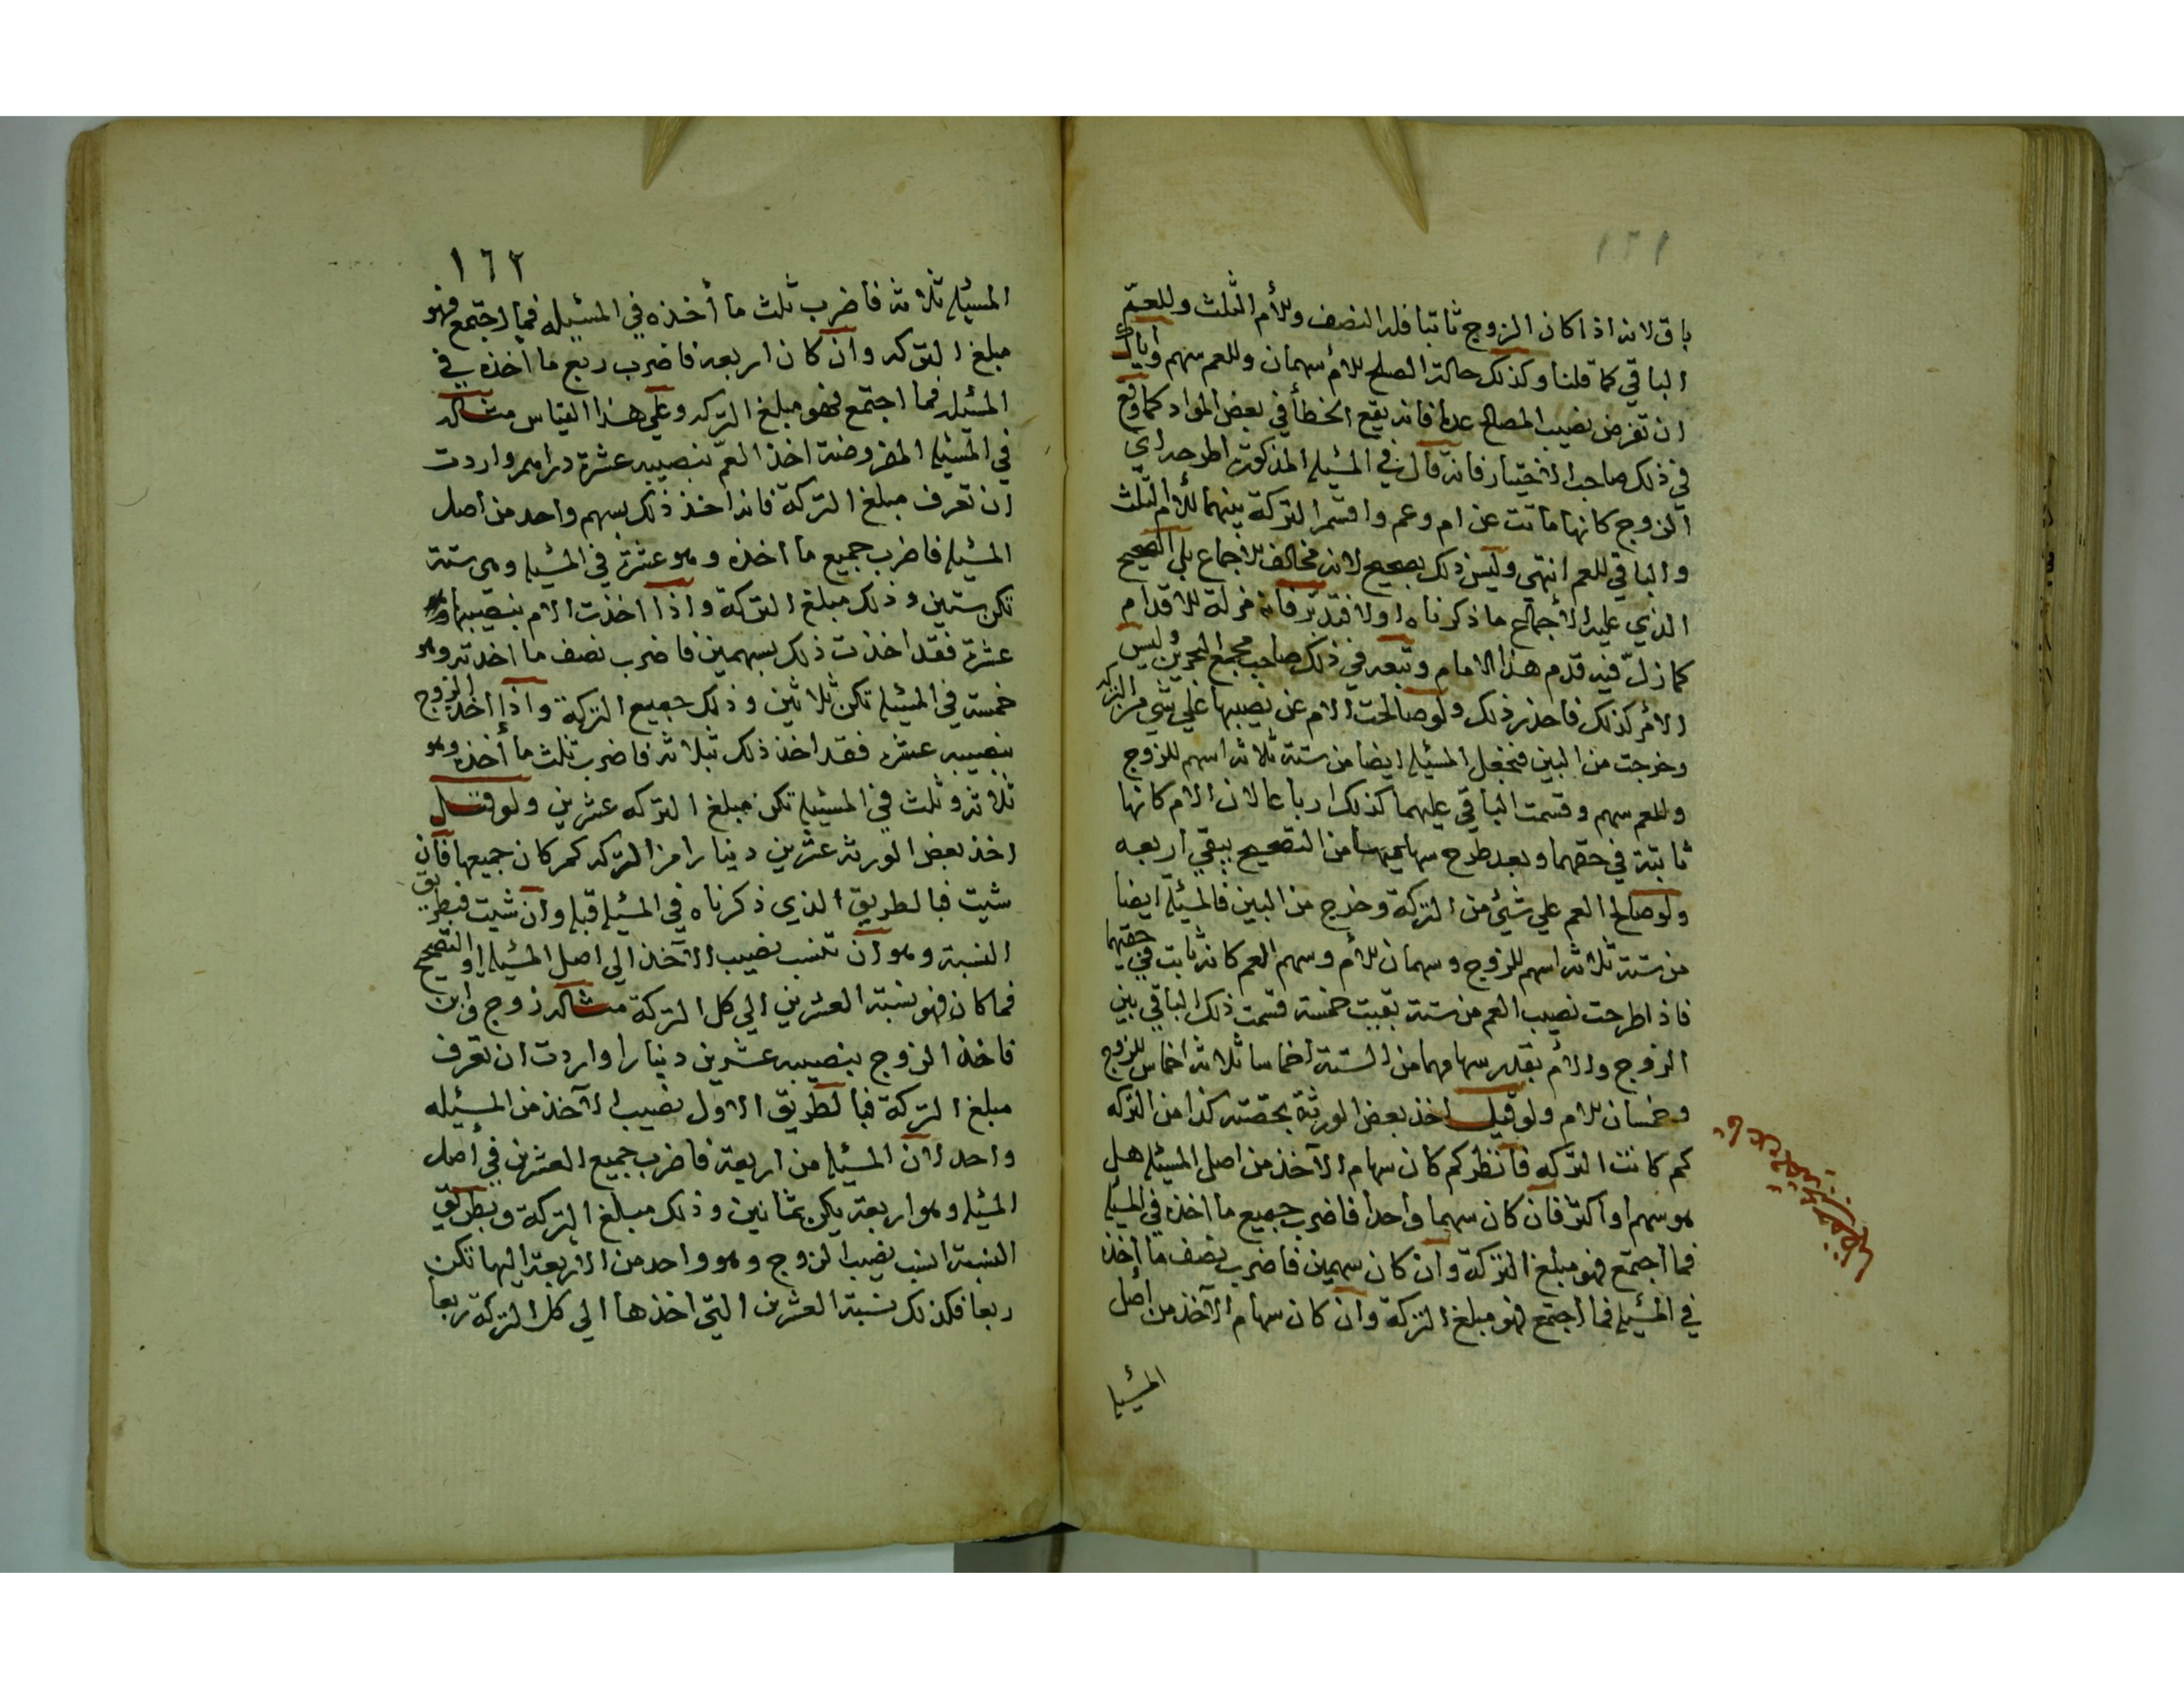 ١٦١
باق لانه اذا كان الزوج ثابتا فله النصف وللأم الثلث وللعم
الباقي كما قلنا وكذلك حالة الصلح للأم سهمان وللعم سهم واياك
ان تفرض نصيب المصالح عدما فانه يقع الخطأ في بعض المواد كما وقع
في ذلك صاحب الاختيار فانه قال في المسئلة المذكورة اطرحه اي
الزوج كانها ماتت عن ام وعم واقسم التركة بينهما للأم الثلث
والباقي للعم انتهى وليس ذلك بصحيح لانه مخالف للاجماع بل الصحيح
الذي عليه الأجماع ما ذكرناه اولا فتدبر فانه مزلة للاقدام
كما زل فيه قدم هذا الامام وتبعه في ذلك صاحب مجمع البحرين وليس
الأمر كذلك فاحذر ذلك ولو صالحت الام عن نصيبها علي شي من التركه
وخرجت من البين فتجعل المسئلة ايضا من ستة ثلاثة اسهم للزوج
وللعم سهم وقسمت الباقي عليهما كذلك ارباعا لان الام كانها
ثابتة في حقهما وبعد طرح سهاميهما من التصحيح يبقي اربعه
ولو صالح العم علي شيئ من التركة وخرج من البين فالمسئلة ايضا
من ستة ثلاثة اسهم للزوج وسهمان للأم وسهم العم كانه ثابت في حقهما
فاذا طرحت نصيب العم من ستة بقيت خمسة قسمت ذلك الباقي بين
الزوج والأم بقدر سهامهما من الستة اخماسا ثلاثة اخماس للزوج
وخمسان للام ولو قيل اخذ بعض الورثة بحصته كذا من التركه
كم كانت التركه فانظر كم كان سهام الآخذ من اصل المسئلة هل
هو سهم او اكثر فان كان سهما واحدا فاضرب جميع ما اخذه في المسئلة
فما اجتمع فهو مبلغ التركة وان كان سهمين فاضرب نصف ما اخذ
في المسئلة فما اجتمع فهو مبلغ التركة وان كان سهام الآخذ من اصل
المسئلة
١٦٢
المسئلة ثلاثة فاضرب ثلث ما أخذه في المسئيله فما اجتمع فهو
مبلغ التركه وان كان اربعة فاضرب ربع ما اخذه في
المسئلة فما اجتمع فهو مبلغ التركه وعلي هذا القياس مثاله
في المسئلة المفروضة اخذ العم بنصيبه عشرة دراهم واردت
ان تعرف مبلغ التركة فانه اخذ ذلك بسهم واحد من اصل
المسئلة فاضرب جميع ما اخذه وهو عشرة في المسئلة وهي ستة
تكن ستين وذلك مبلغ التركة واذا اخذت الام بنصيبها
عشرة فقد اخذت ذلك بسهمين فاضرب نصف ما اخذته وهو
خمسة في المسئلة تكن ثلاثين وذلك جميع التركة واذا اخذ الزوج
بنصيبه عشرة فقد اخذ ذلك بثلاثة فاضرب ثلث ما أخذه وهو
ثلاثة وثلث في المسئلة تكن مبلغ التركه عشرين ولو قيل
اخذ بعض الورثة عشرين دينارا من التركه كم كان جميعها فان
شيت فبالطريق الذي ذكرناه في المسئلة قبله وان شيت فبطريق
النسبة وهو ان تنسب نصيب الآخذ الي اصل المسئلة او التصحيح
فما كان فهو نسبة العشرين الي كل التركة مثاله زوج وابن
فاخذ الزوج بنصيبه عشرين دينارا واردت ان تعرف
مبلغ التركة فبالطريق الاول نصيب الآخذ من المسئيله
واحد لان المسئلة من اربعة فاضرب جميع العشرين في أصل
المسئلة وهو اربعة يكن ثمانين وذلك مبلغ التركة وبطريق
النسبة انسب نصيب الزوج وهو واحد من الأربعة اليها تكن
ربعا فكذلك نسبة العشرين التي اخذها الي كل التركة ربعا